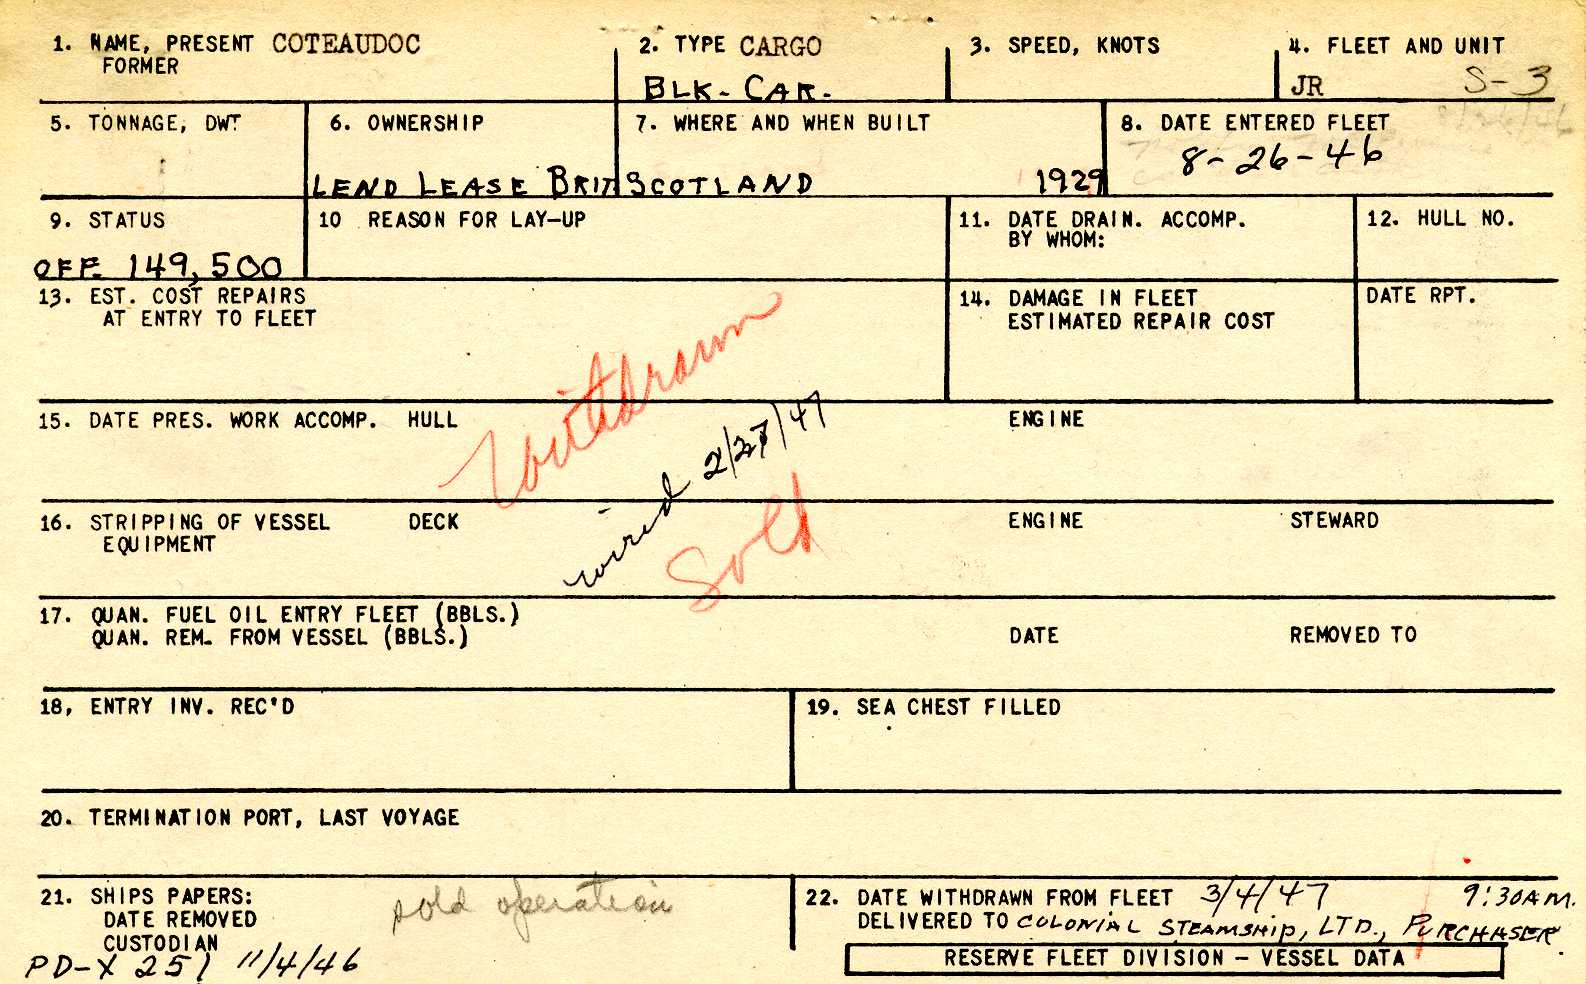 1. NAME, PRESENT COTEAUDOC
FORMER
2. TYPE CARGO
BLK- CAR-
3. SPEED, KNOTS
4. FLEET AND UNIT
JR S-3
5. TONNAGE, DWT
6. OWNERSHIP
LEND LEASE BRIT
7. WHERE AND WHEN BUILT
SCOTLAND 1929
8. DATE ENTERED FLEET
8/26/46
8-26-46
9. STATUS
OFF. 149,500
10 REASON FOR LAY-UP
11. DATE DRAIN. ACCOMP.
BY WHOM:
12. HULL NO.
13. EST. COST REPAIRS
AT ENTRY TO FLEET
14. DAMAGE IN FLEET
ESTIMATED REPAIR COST
DATE RPT.
Withdrawn
15. DATE PRES. WORK ACCOMP. HULL ENGINE
wired 2/27/47
Sold
16. STRIPPING OF VESSEL DECK ENGINE STEWARD
EQUIPMENT
17. QUAN. FUEL OIL ENTRY FLEET (BBLS.)
QUAN. REM. FROM VESSEL (BBLS.) DATE REMOVED TO
18, ENTRY INV. REC'D
19. SEA CHEST FILLED
20. TERMINATION PORT, LAST VOYAGE
21. SHIPS PAPERS:
DATE REMOVED
CUSTODIAN
sold operation
PD-X 251 11/4/46
22. DATE WITHDRAWN FROM FLEET 3/4/47 9:30AM.
DELIVERED TO COLONIAL STEAMSHIP, LTD., PURCHASER.
RESERVE FLEET DIVISION - VESSEL DATA